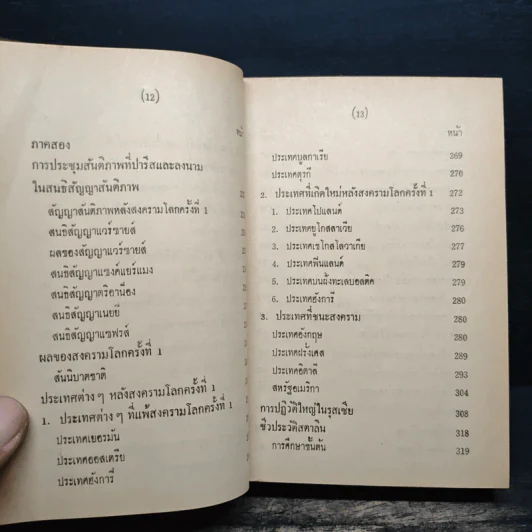 (12)
ภาคสอง
การประชุมสันติภาพที่ปารีสและลงนาม
ในสนธิสัญญาสันติภาพ
สัญญาสันติภาพหลังสงครามโลกครั้งที่ 1
สนธิสัญญาแวร์ซายส์
ผลของสัญญาแวร์ซายส์
สนธิสัญญาแซงต์แยร์แมง
สนธิสัญญาตริอานอง
สนธิสัญญาเนยยี
สนธิสัญญาแซฟรส์
ผลของสงครามโลกครั้งที่ 1
สันนิบาตชาติ
ประเทศต่าง ๆ หลังสงครามโลกครั้งที่ 1
1. ประเทศต่าง ๆ ที่แพ้สงครามโลกครั้งที่ 1
ประเทศเยอรมัน
ประเทศออสเตรีย
ประเทศฮังการี
(13)
หน้า
ประเทศบูลกาเรีย 269
ประเทศตุรกี 270
2. ประเทศที่เกิดใหม่หลังสงครามโลกครั้งที่ 1 272
1. ประเทศโปแลนด์ 273
2. ประเทศยูโกสลาเวีย 276
3. ประเทศเชโกสโลวาเกีย 277
4. ประเทศฟินแลนด์ 279
5. ประเทศบนฝั่งทะเลบอลติค 279
6. ประเทศฮังการี 280
3. ประเทศที่ชนะสงคราม 280
ประเทศอังกฤษ 280
ประเทศฝรั่งเศส 289
ประเทศอิตาลี 293
สหรัฐอเมริกา 304
การปฏิวัติใหญ่ในรุสเซีย 308
ชีวประวัติสตาลิน 318
การศึกษาชั้นต้น 319